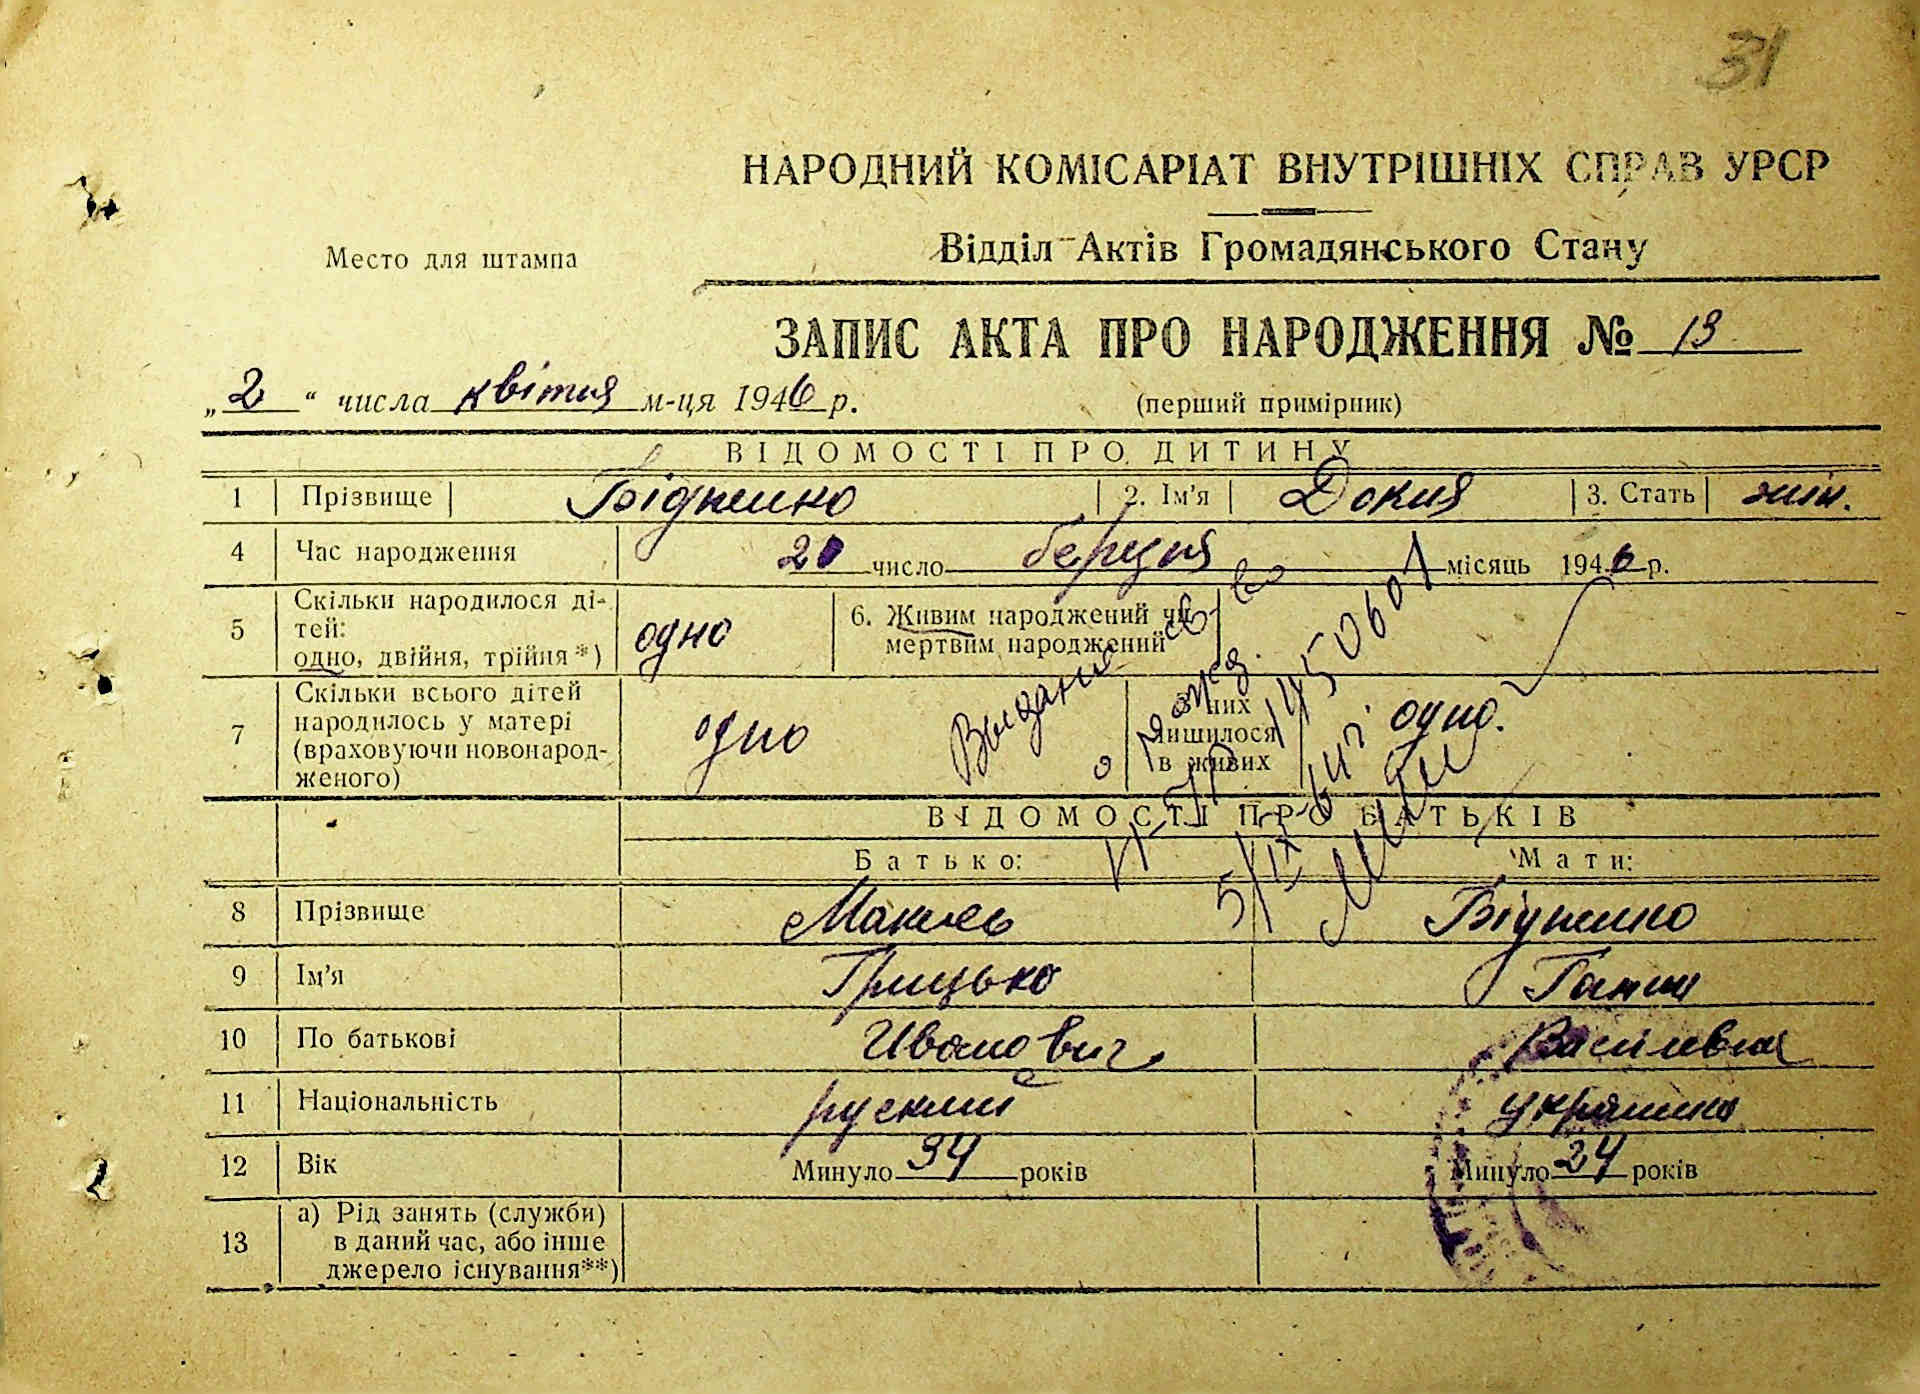 31
НАРОДНИЙ КОМІСАРІАТ ВНУТРІШНІХ СПРАВ УРСР
Місто для штампа
Відділ Актів Громадянського Стану
ЗАПИС АКТА ПРО НАРОДЖЕННЯ № 13
„2“ числа квітня м-ця 1946 р. (перший примірник)
ВІДОМОСТІ ПРО ДИТИНУ
1 Прізвище 2. Ім'я Докия 3. Стать жін.
4 Час народження 20 число березня місяць 1946 р.
5 Скільки народилося дітей: одно, двійня, трійня*) одно 6. Живим народжений чи мертвим народжений
7 Скільки всього дітей народилось у матері (враховуючи новонародженого) одно З них лишилося в живих одно.
Выдано св-во
о рожд.
1450601
5/IX 64 г.
ВІДОМОСТІ ПРО БАТЬКІВ
Батько: Мати:
8 Прізвище
9 Ім'я Грицько Ганна
10 По батькові Иванович Василівна
11 Національність руский українка
12 Вік Минуло 34 років Минуло 24 років
13 а) Рід занять (служби) в даний час, або інше джерело існування**)